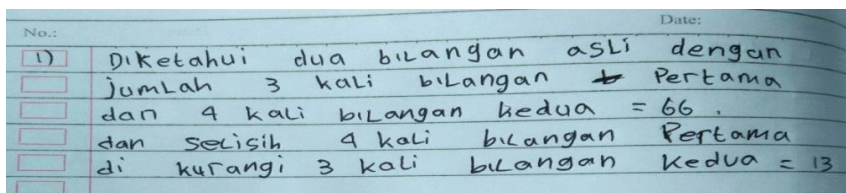 No.: Date:
1) Diketahui dua bilangan asli dengan
jumlah 3 kali bilangan Pertama
dan 4 kali bilangan kedua = 66.
dan selisih 4 kali bilangan Pertama
di kurangi 3 kali bilangan kedua = 13